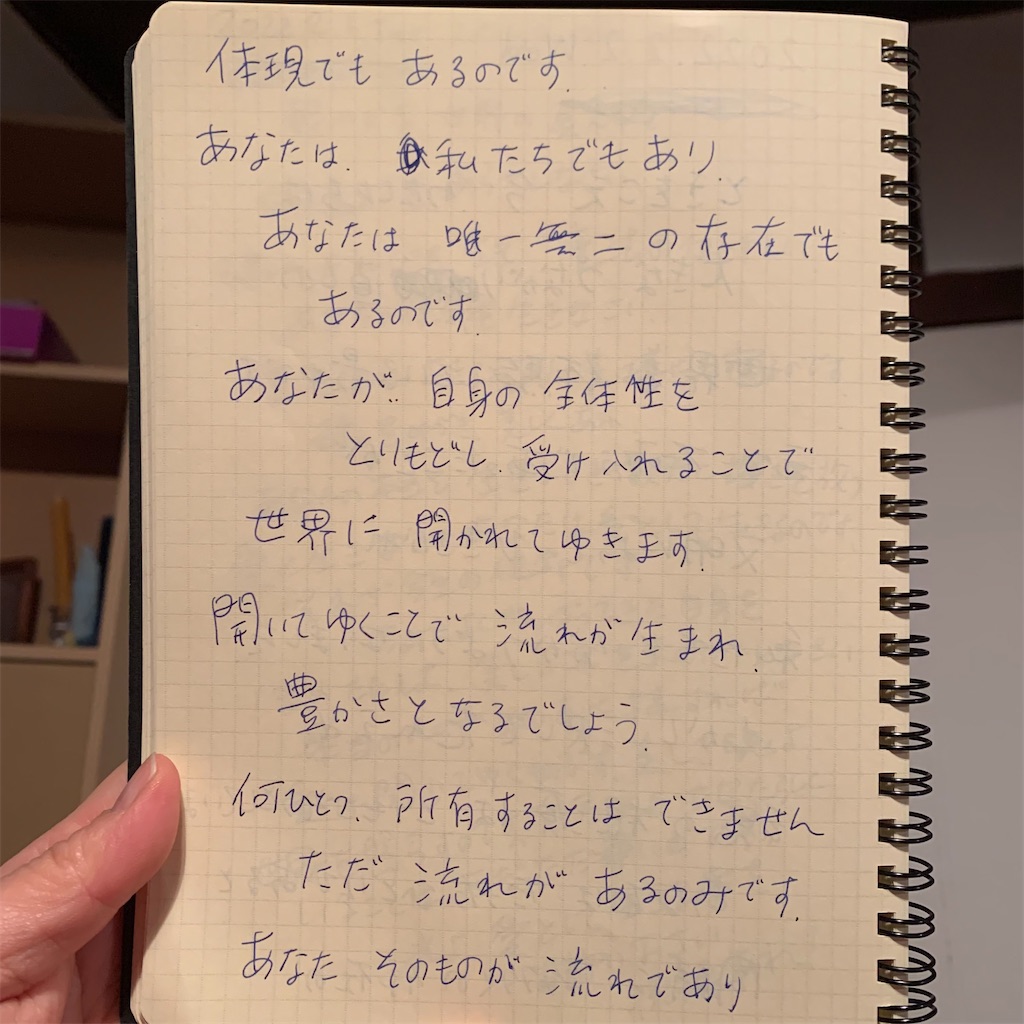 体現でも あるのです.
あなたは. 私たちでもあり.
あなたは 唯一無二の存在でも
あるのです.
あなたが.. 自身の 全体性を
とりもどし. 受け入れることで
世界に 開かれてゆきます.
開いてゆくことで 流れが生まれ.
豊かさとなるでしょう.
何ひとつ. 所有することは できません
ただ 流れが あるのみです.
あなた そのものが 流れであり